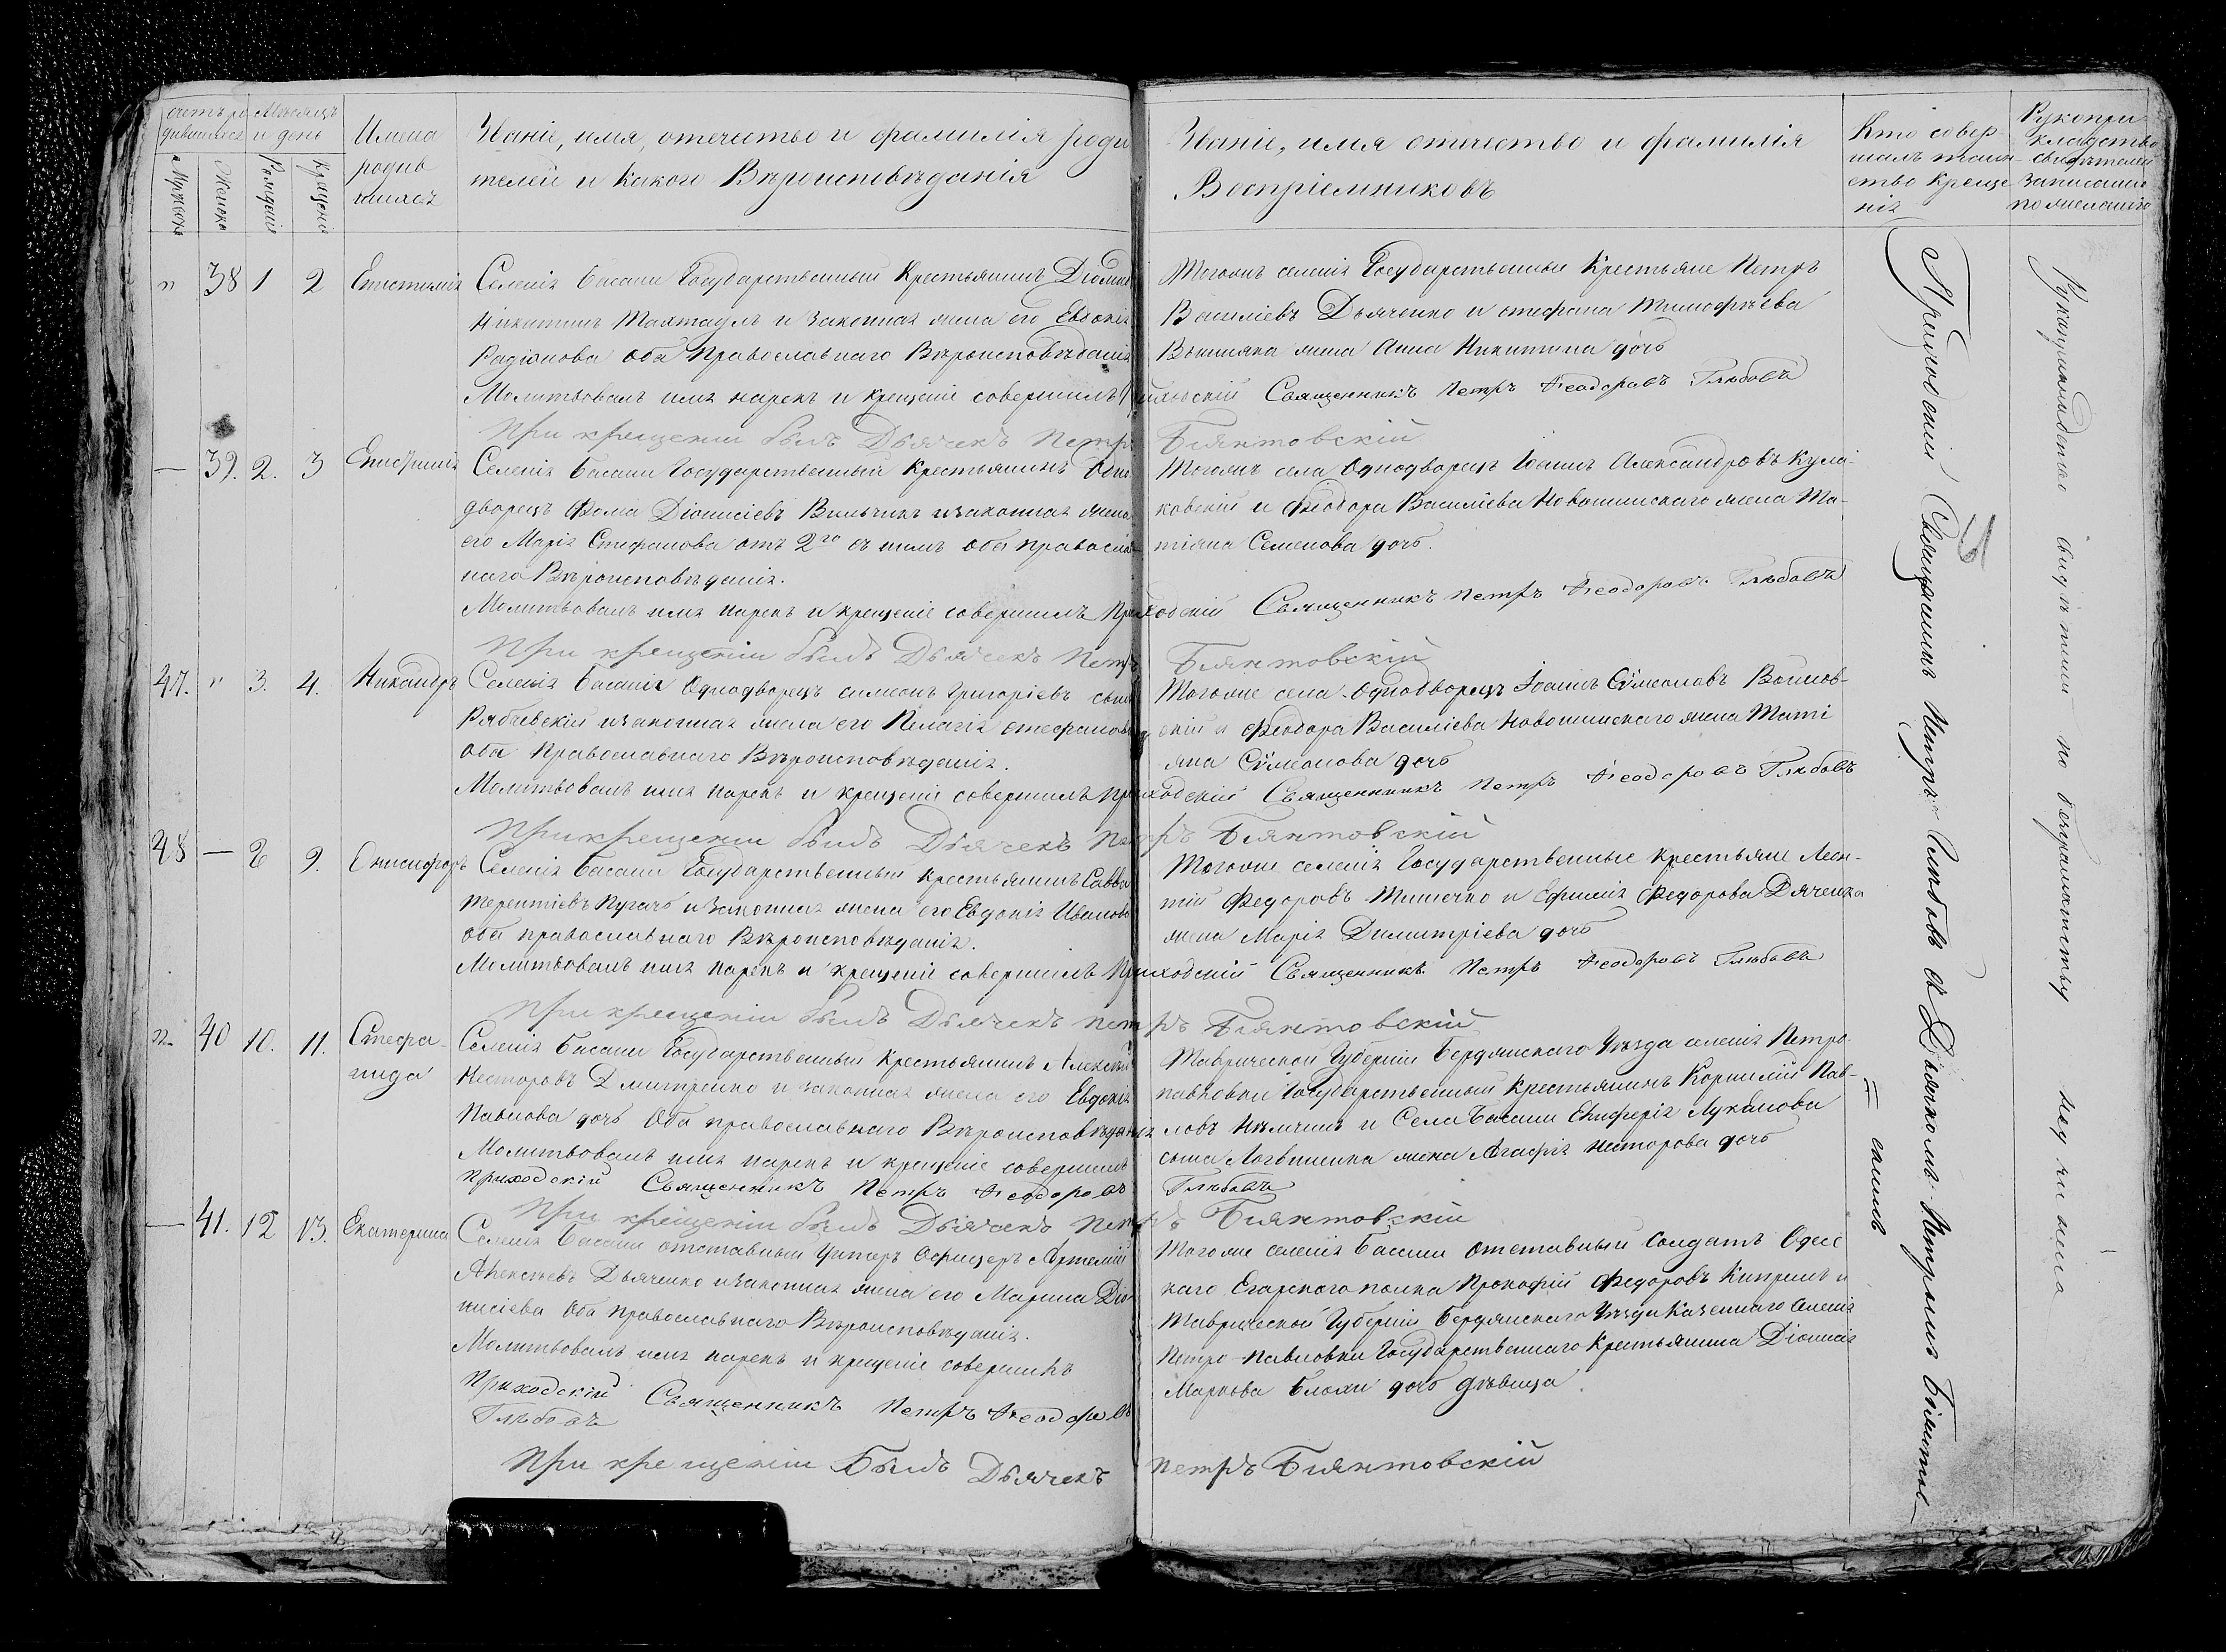 Счетъ ро Мѣсяцъ
дившихся и день
Мужеска
Женска
Рожденія
Крещенія
Имена
родив
шихся
Званіе, имя, отечество и фамилія роди
телей и какого Вѣроисповѣданія
Званіе, имя отечество и фамилія
Воспріемниковъ
Кто совер-
шалъ таин-
ство креще
нія
Рукопри-
кладство
свидѣтелей
записанія
по желанію
" 38 1 2 Епистимія
Селенія Басани Государственный Крестьянинъ
Никитинъ Махтауль и законная жена его Евдокія
Радіонова оба Православнаго Вѣроисповѣданія
Молитвовалъ имя нарекъ и крещеніе совершилъ
При крещеніи былъ Дьячекъ Петръ
Тогожъ селенія Государственные Крестьяне Петръ
Василіевъ Дьяченко и стефана Тимофѣева
жена Анна Никитина дочь
Священникъ Петръ Феодоровъ Глѣбовъ
Біянтовскій
— 39. 2. 3
Селенія Басани Государственный крестьянинъ Одно
дворецъ Фома Діонисіевъ Вильчикъ и законная жена
его Марія Стефанова отъ 2го съ нимъ оба православ
наго Вѣроисповѣданія.
Молитвовалъ имя нарекъ и крещеніе совершилъ Приходскій Священникъ Петръ Феодоровъ Глѣбовъ
При крещеніи былъ Дьячекъ Петръ
Тогожъ села Однодворецъ Іоаннъ Александровъ Кула-
ковскій и Феодора Василіева Новошинскаго жена Та-
тіяна Семенова дочь.
Біянтовскій
47. " 3. 4. Никандръ
Селенія Басани Однодворецъ симеонъ Григоріевъ сынъ
Рябчевскій и законная жена его Пелагія стефанова
оба Православнаго Вѣроисповѣданія.
Молитвовалъ имя нарекъ и крещеніе совершилъ Приходскій Священникъ Петръ Феодоровъ Глѣбовъ
При крещеніи былъ Дьячекъ Петръ Біянтовскій
Тогоже села Однодворецъ Іоаннъ Сѵмеоновъ Войнов-
скій и Феодора Василіева Новошинскаго жена Тати
яна Сѵмеонова дочь
48 — 9. Онисифоръ
Селенія Басани Государственный крестьянинъ Савва
Терентіевъ Пугачъ и законная жена его Евдокія Иванова
оба православнаго Вѣроисповѣданія.
Молитвовалъ имя нарекъ и крещеніе совершилъ Приходскій Священникъ Петръ Феодоровъ Глѣбовъ
При крещеніи былъ Дьячекъ Петръ Біянтовскій
Тогоже селенія Государственные крестьяне Леон-
тій Федоровъ Тимечко и Ефимія Федорова Дяченка
жена Марія Димитріева дочь
40 10. 11. Стефа-
нида
Селенія Басани Государственный Крестьянинъ Алексѣй
Несторовъ Дмитренко и законная жена его Евдокія
Павлова дочь Оба православнаго Вѣроисповѣданія
Молитвовалъ имя нарекъ и крещеніе совершилъ
Приходскій Священникъ Петръ Феодоровъ Глѣбовъ
При крещеніи былъ Дьячекъ Петръ Біянтовскій
Таврической Губерніи Бердянскаго Уѣзда селенія Петро-
павловки Государственный крестьянинъ Корнилій Пав-
ловъ и Села Басани Лукянова
сына Логвиненка жена Агафія Несторова дочь
— 41. 12 13. Екатерина
Селенія Басани отставный Унтеръ Офицеръ Артемій
Алексѣевъ Дьяченко и законная жена его Марина Діо
нисіева Оба Православнаго Вѣроисповѣданія.
Молитвовалъ имя нарекъ и крещеніе совершилъ
Приходскій Священникъ Петръ Феодоровъ
Глѣбовъ
При крещеніи Былъ Дьячекъ Петръ Біянтовскій
Тогоже селенія Басани отставный Солдатъ Одес
каго Егарского полка Прокофій Федоровъ и
Таврической Губерніи Бердянскаго Уѣзда Казеннаго селенія
Петро-Павловки Государственнаго Крестьянина Діонисія
Маркова дочь дѣвица.
Приходскій Священникъ Петръ Глѣбовъ съ Дьячкомъ Петромъ Біянтов-
= скимъ
Рукоприкладства свидѣтели по безграмотству не учинили